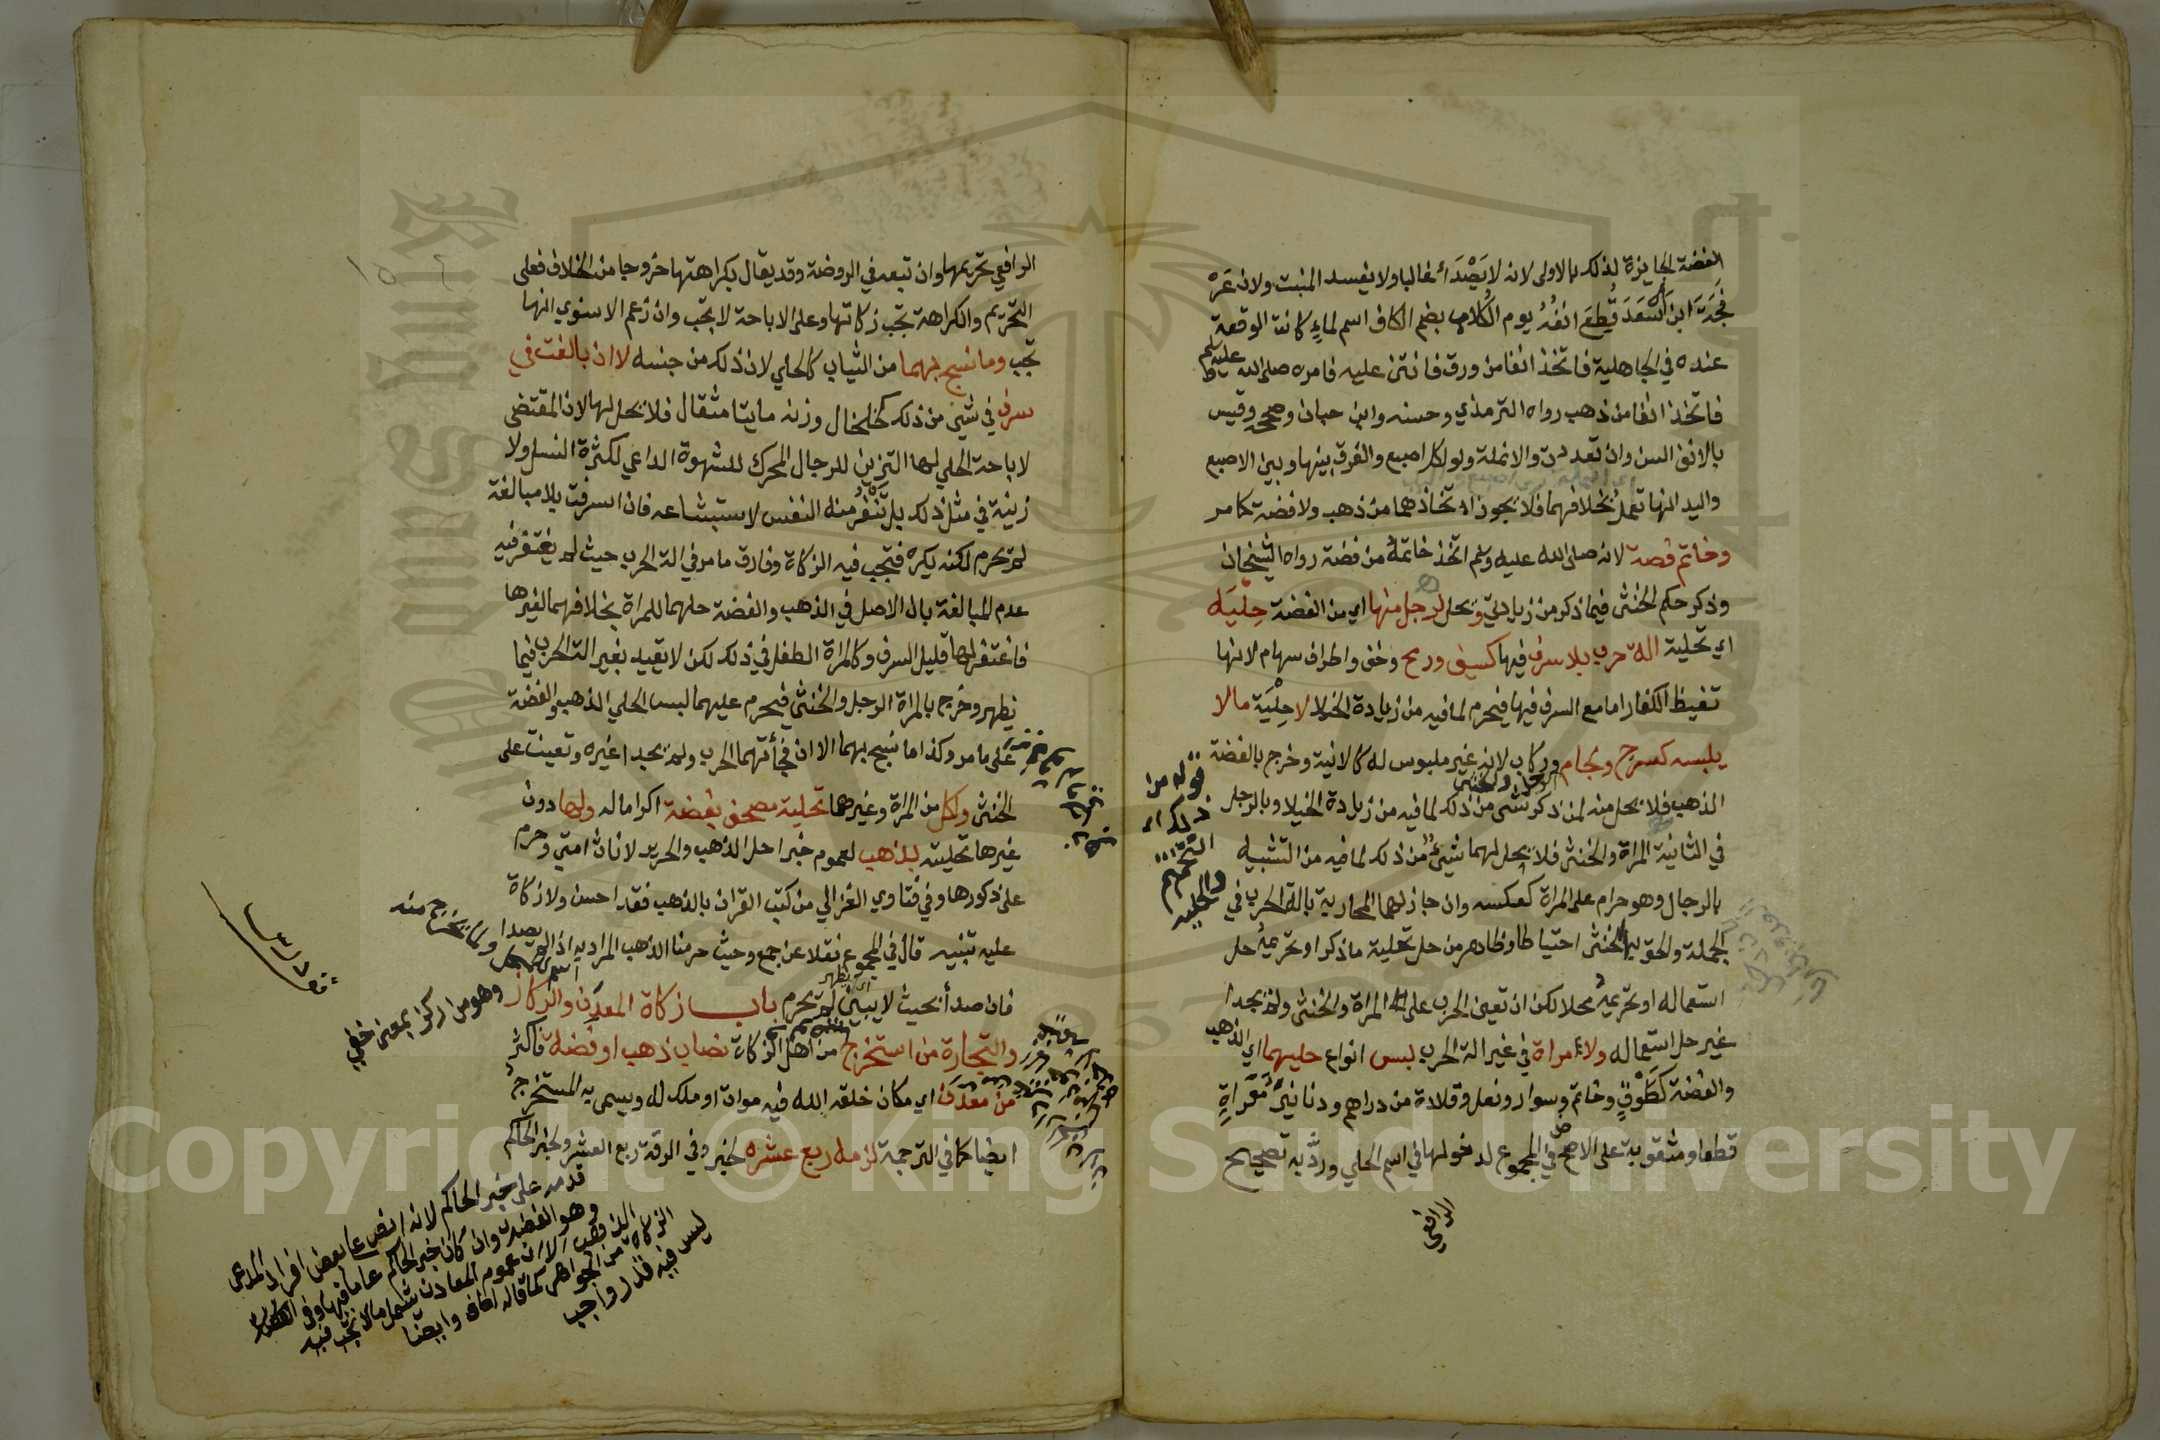 الفضة الجايزة لذلك بالاولى لانه لا يَصْدَأ غالبا ولا يفسد المنبت ولان عَرْ
فَجَةَ ابن اَسْعَدَ قُطِعَ انفُهُ يوم الكُلاب بضم الكاف اسم لماءٍ كانت الوقعة
عنده في الجاهلية فاتخذ انفا من ورق فانتن عليه فامره صلى الله عليه وسلم
فاتخذ انفا من ذهب رواه الترمذي وحسنه وابن حبان وصححه وقيس
بالانف السن وان تعددت والانملة ولو لكل اصبع والفرق بينها وبين الاصبع
واليد انها تعمل بخلافهما فلا يجوز اتخاذهما من ذهب ولا فضة كما مر
وخاتم فضة لانه صلى الله عليه وسلم اتخذ خاتما من فضة رواه الشيخان
وذكر حكم الخنثى فيما ذكر من زيادتي وتحل لرجل منها اي من الفضة حِلْيَة
اي تحلية الة حرب بلا سرف فيها كسيف ورمح وخف واطراف سهام لانها
تغيظ الكفار اما مع السرف فيها فيحرم لما فيه من زيادة الخيلا لا حِلْيَة ما لا
يلبسه كسرج ولجام وركاب لانه غير ملبوس له كالانية وخرج بالفضة
الذهب فلا يحل منه لمن ذكر شي من ذلك لما فيه من زيادة الخيلا وبالرجل
الرجل والخنثى
في الثانية المراة والخنثى فلا يحل لهما شيئ من ذلك لما فيه من التشبيه
بالرجال وهو حرام على المراة كعكسه وان جاز لهما المحاربة بالة الحرب في
الجملة والحق بها الخنثى احتياطا وظاهر من حل تحلية ما ذكر او تحريمه حل
استعماله او تحريمه محلا لكن ان تعين الحرب على المراة والخنثى ولم يجدا
غير حل استعماله ولامراة في غير الة الحرب لبس انواع حليهما اي الذهب
والفضة كَطَوْقٍ وخاتم وسوار ونعل وقلادة من دراهم ودنانير مُعَرَّاةٍ
قطعا ومثقوبة على الاصح في المجموع لدخولها في اسم الحلي وردَّ به تصحيح
الرافعي
قوله من
ذلك اي
التختم
والحلية
الرافعي تحريمها وان تبعه في الروضة وقد يقال بكراهتها خروجا من الخلاف فعلى
التحريم والكراهة تجب زكاتها وعلى الاباحة لا تجب وان زعم الاسنوي انها
تجب وما نسج بهما من الثياب كالحلي لان ذلك من جنسه لا ان بالغت في
سرف في شيئ من ذلك كخلخال وزنه مايتا مثقال فلا يحل لها لان المقتضى
لاباحة الحلي لها التزين للرجال المحرك للشهوة الداعي لكثرة النسل ولا
زينة في مثل ذلك بل تَنْفِرُ منه النفس لاستبشاعه فان اسرفت بلا مبالغة
لم تحرم لكنه يكره فتجب فيه الزكاة وفارق ما مر في الة الحرب حيث لم يغتفر فيه
عدم المبالغة بان الاصل في الذهب والفضة حلهما للمراة بخلافهما لغيرها
فاغتفر لها قليل السرف وكالمراة الطفل في ذلك لكن لا تقيد بغير الة الحرب فيما
يظهر وخرج بالمراة الرجل والخنثى فيحرم عليهما لبس الحلي الذهب والفضة
على ما مر وكذا ما نسج بهما الا ان فجأتهما الحرب ولم يجدا غيره وتعينت على
الخنثى ولكل من المراة وغيرها تحلية مصحف بفضة اكراما له ولها دون
غيرها تحليته بذهب لعموم خبر احل الذهب والحرير لاناث امتي وحرم
على ذكورها وفي فتاوي الغزالي من كتب القران بالذهب فقد احسن ولا زكاة
عليه تنبيه قال في المجموع نقلا عن جمع وحيث حرمنا الذهب المراد به اذا لم يصدا
فان صدأ بحيث لا يبين لم يحرم باب زكاة المعدن والركاز
اي يظهر
والتجارة من استخرج من اهل الزكاة نصاب ذهب او فضة فاكثر
من معدن اي مكان خلقه الله فيه موات او ملك له ويسمى به المستخرج
ايضا كما في الترجمة لزمه ربع عشره لخبر وفي الرقة ربع العشر ولخبر الحاكم
وهو من اركز بمعنى خفي
قدمه على خبر الحاكم لانه نص على بعض افراد المدعى
وهو الفضة وان كان خبر الحاكم عاما فيها وفي
الذهب لان عموم المعادن شمل ما لا تجب فيه
الزكاة من الجواهر كما قاله وايضا
ليس فيه قدر واجب
Copyright © King Saud University
King Saud University
1957